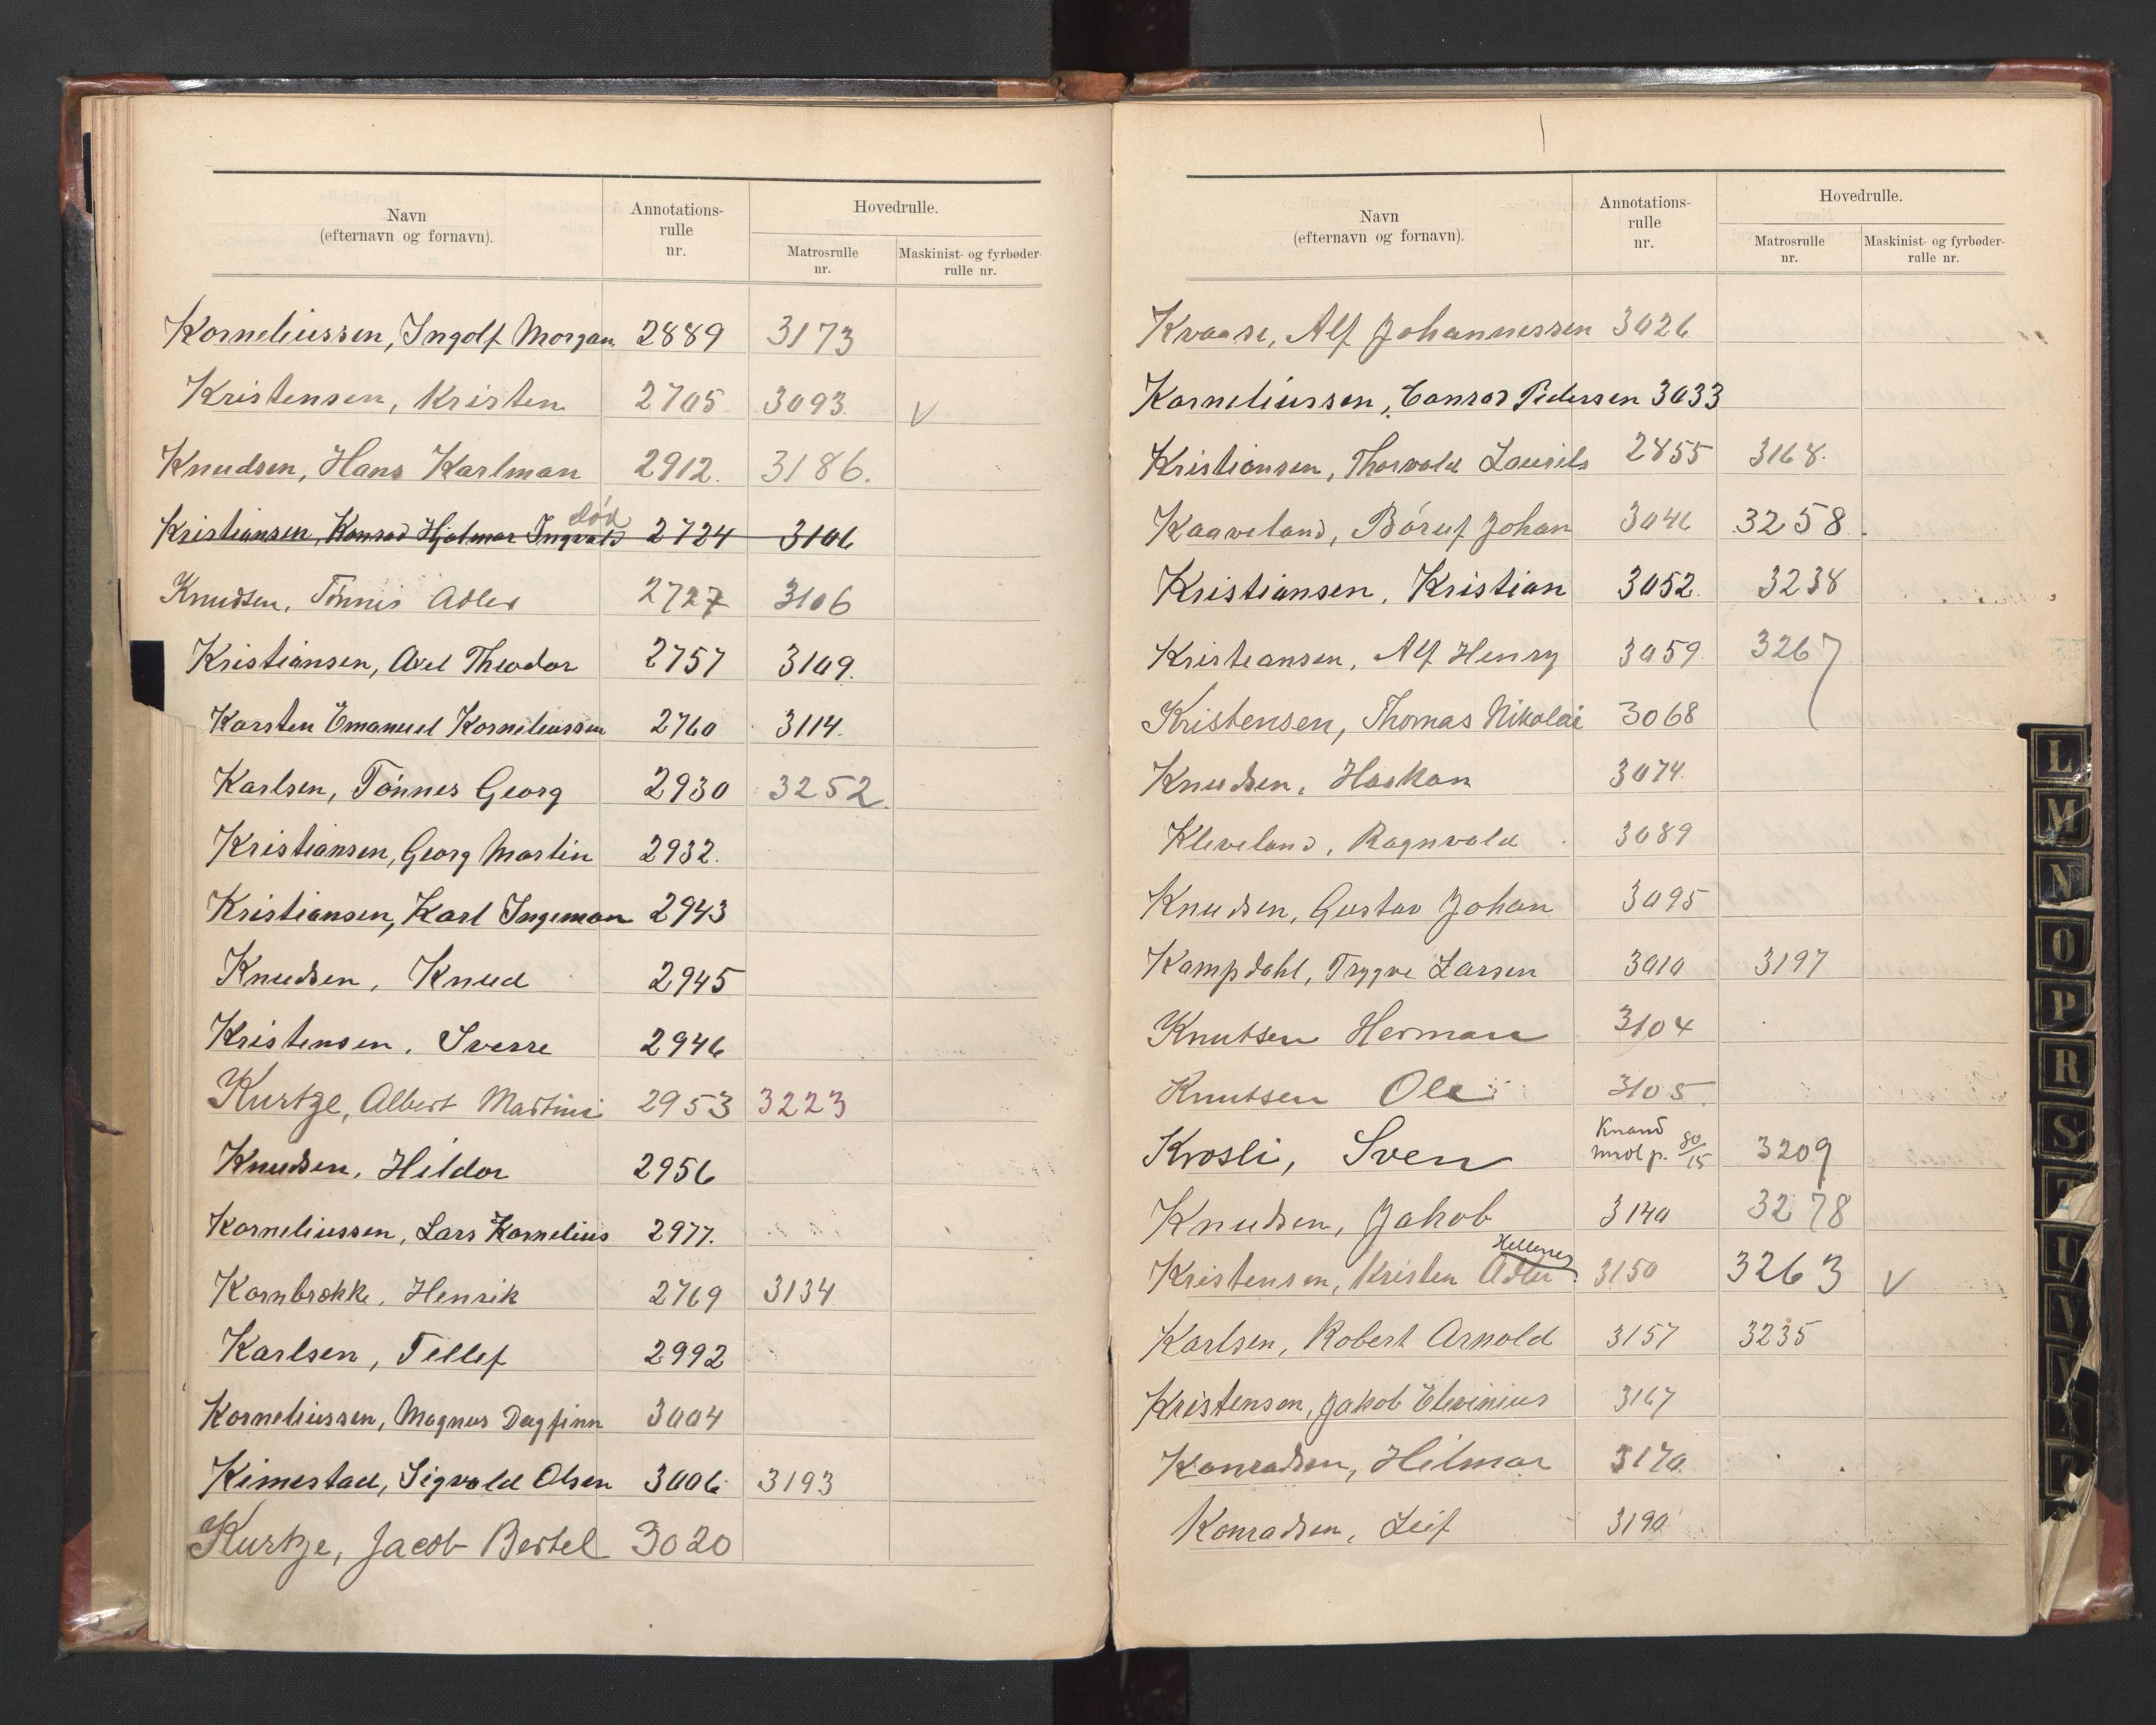 Navn
(efternavn og fornavn).
Annotations-
rulle
nr.
Hovedrulle.
Matrosrulle
nr.
Maskinist- og fyrbøder-
rulle nr.
Korneliussen, Ingolf Morgan 2889 3173
Kristensen, Kristen 2705 3093. V
Knudsen, Hans Karlman 2912. 3186.
død
Kristiansen, Konrad Hjalmar Ingvald 2724 3106
Knudsen, Tønnes Adler 2727 3106
Kristiansen, Axel Theodor 2757 3109.
Karsten Emanuel Korneliussen 2760 3114.
Karlsen, Tønnes Georg 2930 3252.
Kristiansen, Georg Martin 2932.
Kristiansen, Karl Ingeman 2943
Knudsen, Knud 2945
Kristensen, Sverre 2946
Kurtze, Albert Martini 2953 3223
Knudsen, Hildor 2956
Korneliussen, Lars Kornelius 2977.
Kornbrekke, Henrik 2769 3134
Karlsen, Tellef 2992
Korneliussen, Magnus Dagfinn 3004
Kimestad, Sigvald Olsen 3006 3193
Kurtze, Jacob Bertel 3020
Navn
(efternavn og fornavn).
Annotations-
rulle
nr.
Hovedrulle.
Matrosrulle
nr.
Maskinist- og fyrbøder-
rulle nr.
Kvaase, Alf Johannessen 3026
Korneliussen, Conrad Pedersen 3033
Kristiansen, Thorvald Laurits 2855 3168.
Kaaveland, Børuf Johan 3046 3258.
Kristiansen, Kristian 3052. 3238
Kristiansen, Alf Henry 3059. 3267
Kristensen, Thomas Nikolai 3068
Knudsen, Haakon 3074.
Kleveland, Ragnvald 3089
Knudsen, Gustav Johan 3095
Kampdahl, Trygve Larsen 3010 3197
Knutsen Herman 3104
Knutsen Ole 3105
Krosli, Sven 3209
Knudsen, Jakob 3140 3278
Kristensen, Kristen Adler 3150 3263 V
Karlsen, Robert Arnold 3157 3235
Kristensen, Jakob Elevinius 3167
Konradsen, Hilmar 3170.
Konradsen, Leif 3190
L
M
N
O
P
R
S
T
U
V